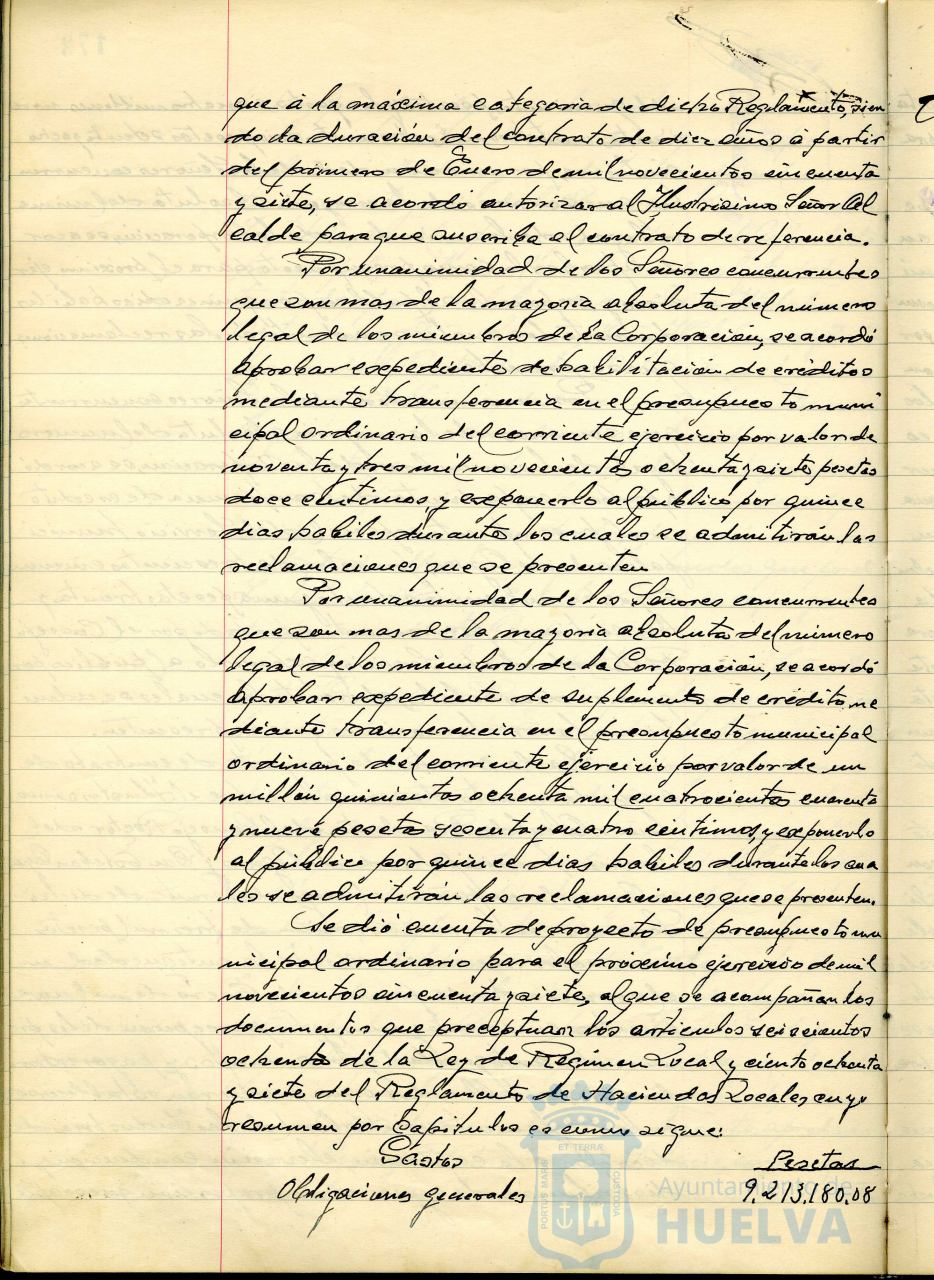 que à la máxima categoria de dicho Reglamento, sien
do la duración del contrato de diez años à partir
del primero de Enero de mil novecientos cincuenta
y siete, se acordó autorizar al Ilustrisimo Señor Al
calde para que suscriba el contrato de referencia.
Por unanimidad de los Señores concurrentes
que son mas de la mayoria absoluta del número
legal de los miembros de la Corporación, se acordó
aprobar expediente de habilitación de créditos
mediante transferencia en el presupuesto muni
cipal ordinario del corriente ejercicio por valor de
noventa y tres mil novecientas ochenta y siete pesetas
doce centimos, y exponerlo al público por quince
dias habiles durante los cuales se admitirán las
reclamaciones que se presenten
Por unanimidad de los Señores concurrentes
que son mas de la mayoria absoluta del número
legal de los miembros de la Corporación, se acordó
aprobar expediente de suplemento de crédito me
diante transferencia en el presupuesto municipal
ordinario del corriente ejercicio por valor de un
millón quinientas ochenta mil cuatrocientas cuarenta
y nueve pesetas sesenta y cuatro centimos, y exponerlo
al público por quince dias habiles durante los cua
les se admitirán las reclamaciones que se presenten.
Se dió cuenta de proyecto de presupuesto mu
nicipal ordinario para el próximo ejercicio de mil
novecientos cincuenta y siete, al que se acompañan los
documentos que preceptuan los articulos seiscientos
ochenta de la Ley de Regimen Local y ciento ochenta
y siete del Reglamento de Haciendas Locales cuyo
resumen por Capitulos es como sigue:
Gastos Pesetas
Obligaciones generales 9.213.180,08
PORTUS MARIS ET TERRÆ CUSTODIA
Ayuntamiento de
HUELVA